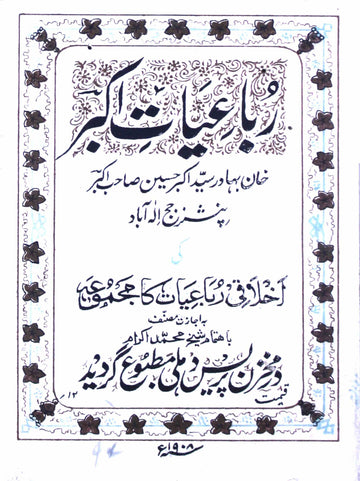 رُباعیاتِ اکبر
خان بہادر سیّد اکبر حسین صاحب اکبر
پنشنر جج الٰہ آباد
کی
اخلاقی رباعیات کا مجموعہ
باجازت مصنف
باہتمام شیخ محمد اکرام
در مخزن پریس دہلی مطبوع گردید
قیمت ۱۲
سنہ ۱۹۰۸ء